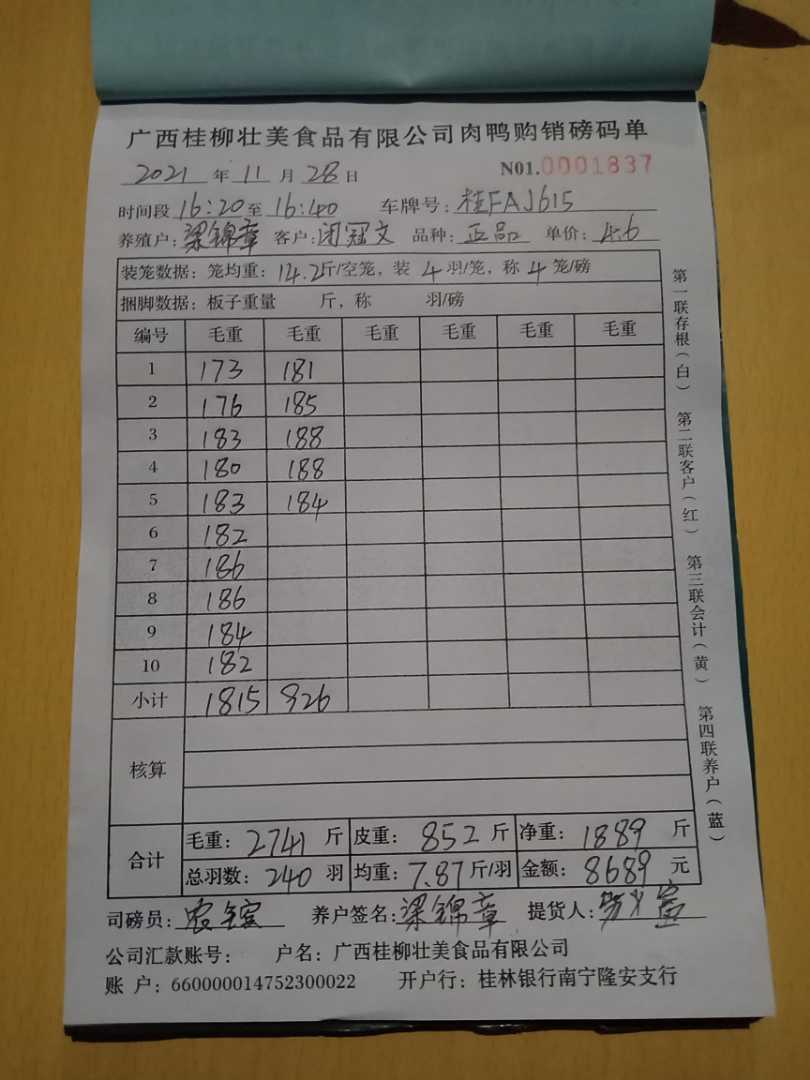 广西桂柳壮美食品有限公司肉鸭购销磅码单
2021 年 11 月 28 日 N01.0001837
时间段 16:20 至 16:40 车牌号: 桂FAJ615
养殖户: 梁锦章 客户: 闭冠文 品种: 正品 单价: 4.6
装笼数据: 笼均重: 14.2 斤/空笼, 装 4 羽/笼, 称 4 笼/磅
捆脚数据: 板子重量 斤, 称 羽/磅
编号 毛重 毛重 毛重 毛重 毛重 毛重
1 173 181
2 176 185
3 183 188
4 180 188
5 183 184
6 182
7 186
8 186
9 184
10 182
小计 1815 926
核算
合计 毛重: 2741 斤 皮重: 852 斤 净重: 1889 斤
总羽数: 240 羽 均重: 7.87 斤/羽 金额: 8689 元
司磅员: 养户签名: 梁锦章 提货人:
公司汇款账号: 户名: 广西桂柳壮美食品有限公司
账 户: 660000014752300022 开户行: 桂林银行南宁隆安支行
第一联存根(白) 第二联客户(红) 第三联会计(黄) 第四联养户(蓝)